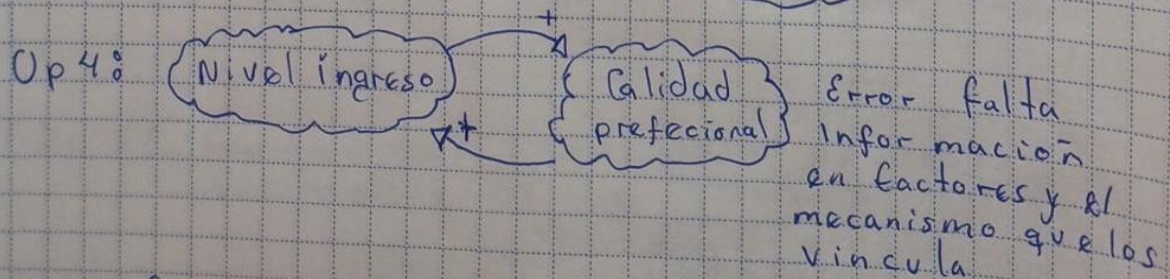 Op 4:
Nivel ingreso
+
Calidad
prefecional
+
Error falta
Informacion
en factores y el
mecanismo que los
vincula